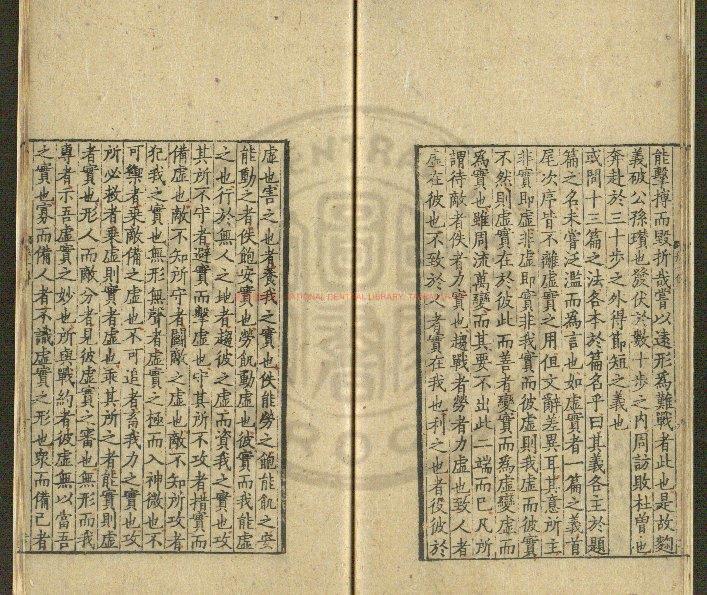 能擊搏而毀折哉嘗以遠形為難戰者此也是故麴
義破公孫瓚也發伏於數十步之内周訪敗杜曽也
奔赴於三十步之外得節短之義也
或問十三篇之法各本於篇名乎曰其義各主於題
篇之名未嘗泛濫而為言也如虛實者一篇之義首
尾次序皆不離虛實之用但文辭差異耳其意所主
非實即虛非虛即實非我實而彼虛則我虛而彼實
不然則虛實在於彼此而善者變實而為虛變虛而
為實也雖周流萬變而其要不出此二端而已凡所
謂待敵者佚者力實也趨戰者勞者力虛也致人者
虛在彼也不致於人者實在我也利之也者役彼於
虛也害之也者養我之實也佚能勞之飽能飢之安
能動之者佚飽安實也勞飢動虛也彼實而我能虛
之也行於無人之地者趨彼之虛而資我之實也攻
其所不守者避實而擊虛也守其所不攻者措實而
備虛也敵不知所守者鬬敵之虛也敵不知所攻者
犯我之實也無形無聲者虛實之極而入神微也不
可禦者乘敵備之虛也不可追者畜我力之實也攻
所必救者乘虛則實者虛也乖其所之者能實則虛
者實也形人而敵分者見彼虛實之審也無形而我
專者示吾虛實之妙也所與戰約者彼虛無以當吾
之實也寡而備人者不識虛實之形也衆而備己者
NATIONAL CENTRAL LIBRARY